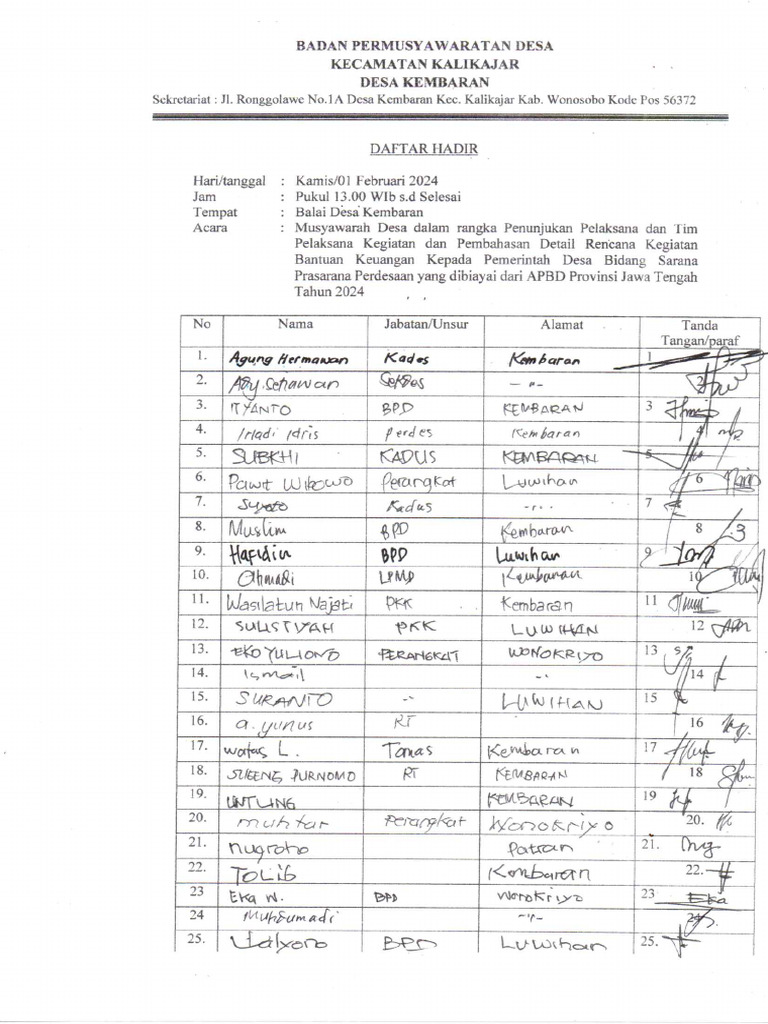 BADAN PERMUSYAWARATAN DESA
KECAMATAN KALIKAJAR
DESA KEMBARAN
Sekretariat : Jl. Ronggolawe No.1A Desa Kembaran Kec. Kalikajar Kab. Wonosobo Kode Pos 56372
DAFTAR HADIR
Hari/tanggal : Kamis/01 Februari 2024
Jam : Pukul 13.00 WIb s.d Selesai
Tempat : Balai Desa Kembaran
Acara : Musyawarah Desa dalam rangka Penunjukan Pelaksana dan Tim
Pelaksana Kegiatan dan Pembahasan Detail Rencana Kegiatan
Bantuan Keuangan Kepada Pemerintah Desa Bidang Sarana
Prasarana Perdesaan yang dibiayai dari APBD Provinsi Jawa Tengah
Tahun 2024
No Nama Jabatan/Unsur Alamat Tanda
Tangan/paraf
1. Agung Hermawan Kades Kembaran 1
2. Setiawan Sekdes -"- 2
3. ITYANTO BPD KEMBARAN 3
4. Idris Perdes Kembaran 4
5. SUBKHI KADUS KEMBARAN 5
6. Pawit Wibowo Perangkat Luwihan 6
7. Kadus -"- 7
8. Muslim BPD Kembaran 8
9. Hafidin BPD Luwihan 9
10. Ahmadi LPMD Kembaran 10
11. Wasilatun Najati PKK Kembaran 11
12. SULISTIYAH PKK LUWIHAN 12
13. EKO YULIONO PERANGKAT WONOKRIYO 13
14. Ismail -"- 14
15. SURANTO -"- LUWIHAN 15
16. a. yunus RT 16
17. L. Tomas Kembaran 17
18. SUGENG PURNOMO RT KEMBARAN 18
19. UNTUNG KEMBARAN 19
20. muhtar Perangkat Wonokriyo 20.
21. nugroho Patran 21.
22. TOLIB Kembaran 22.
23 Eka W. BPD Wonokriyo 23 Eka
24 -"- 24
25. BPD Luwihan 25.